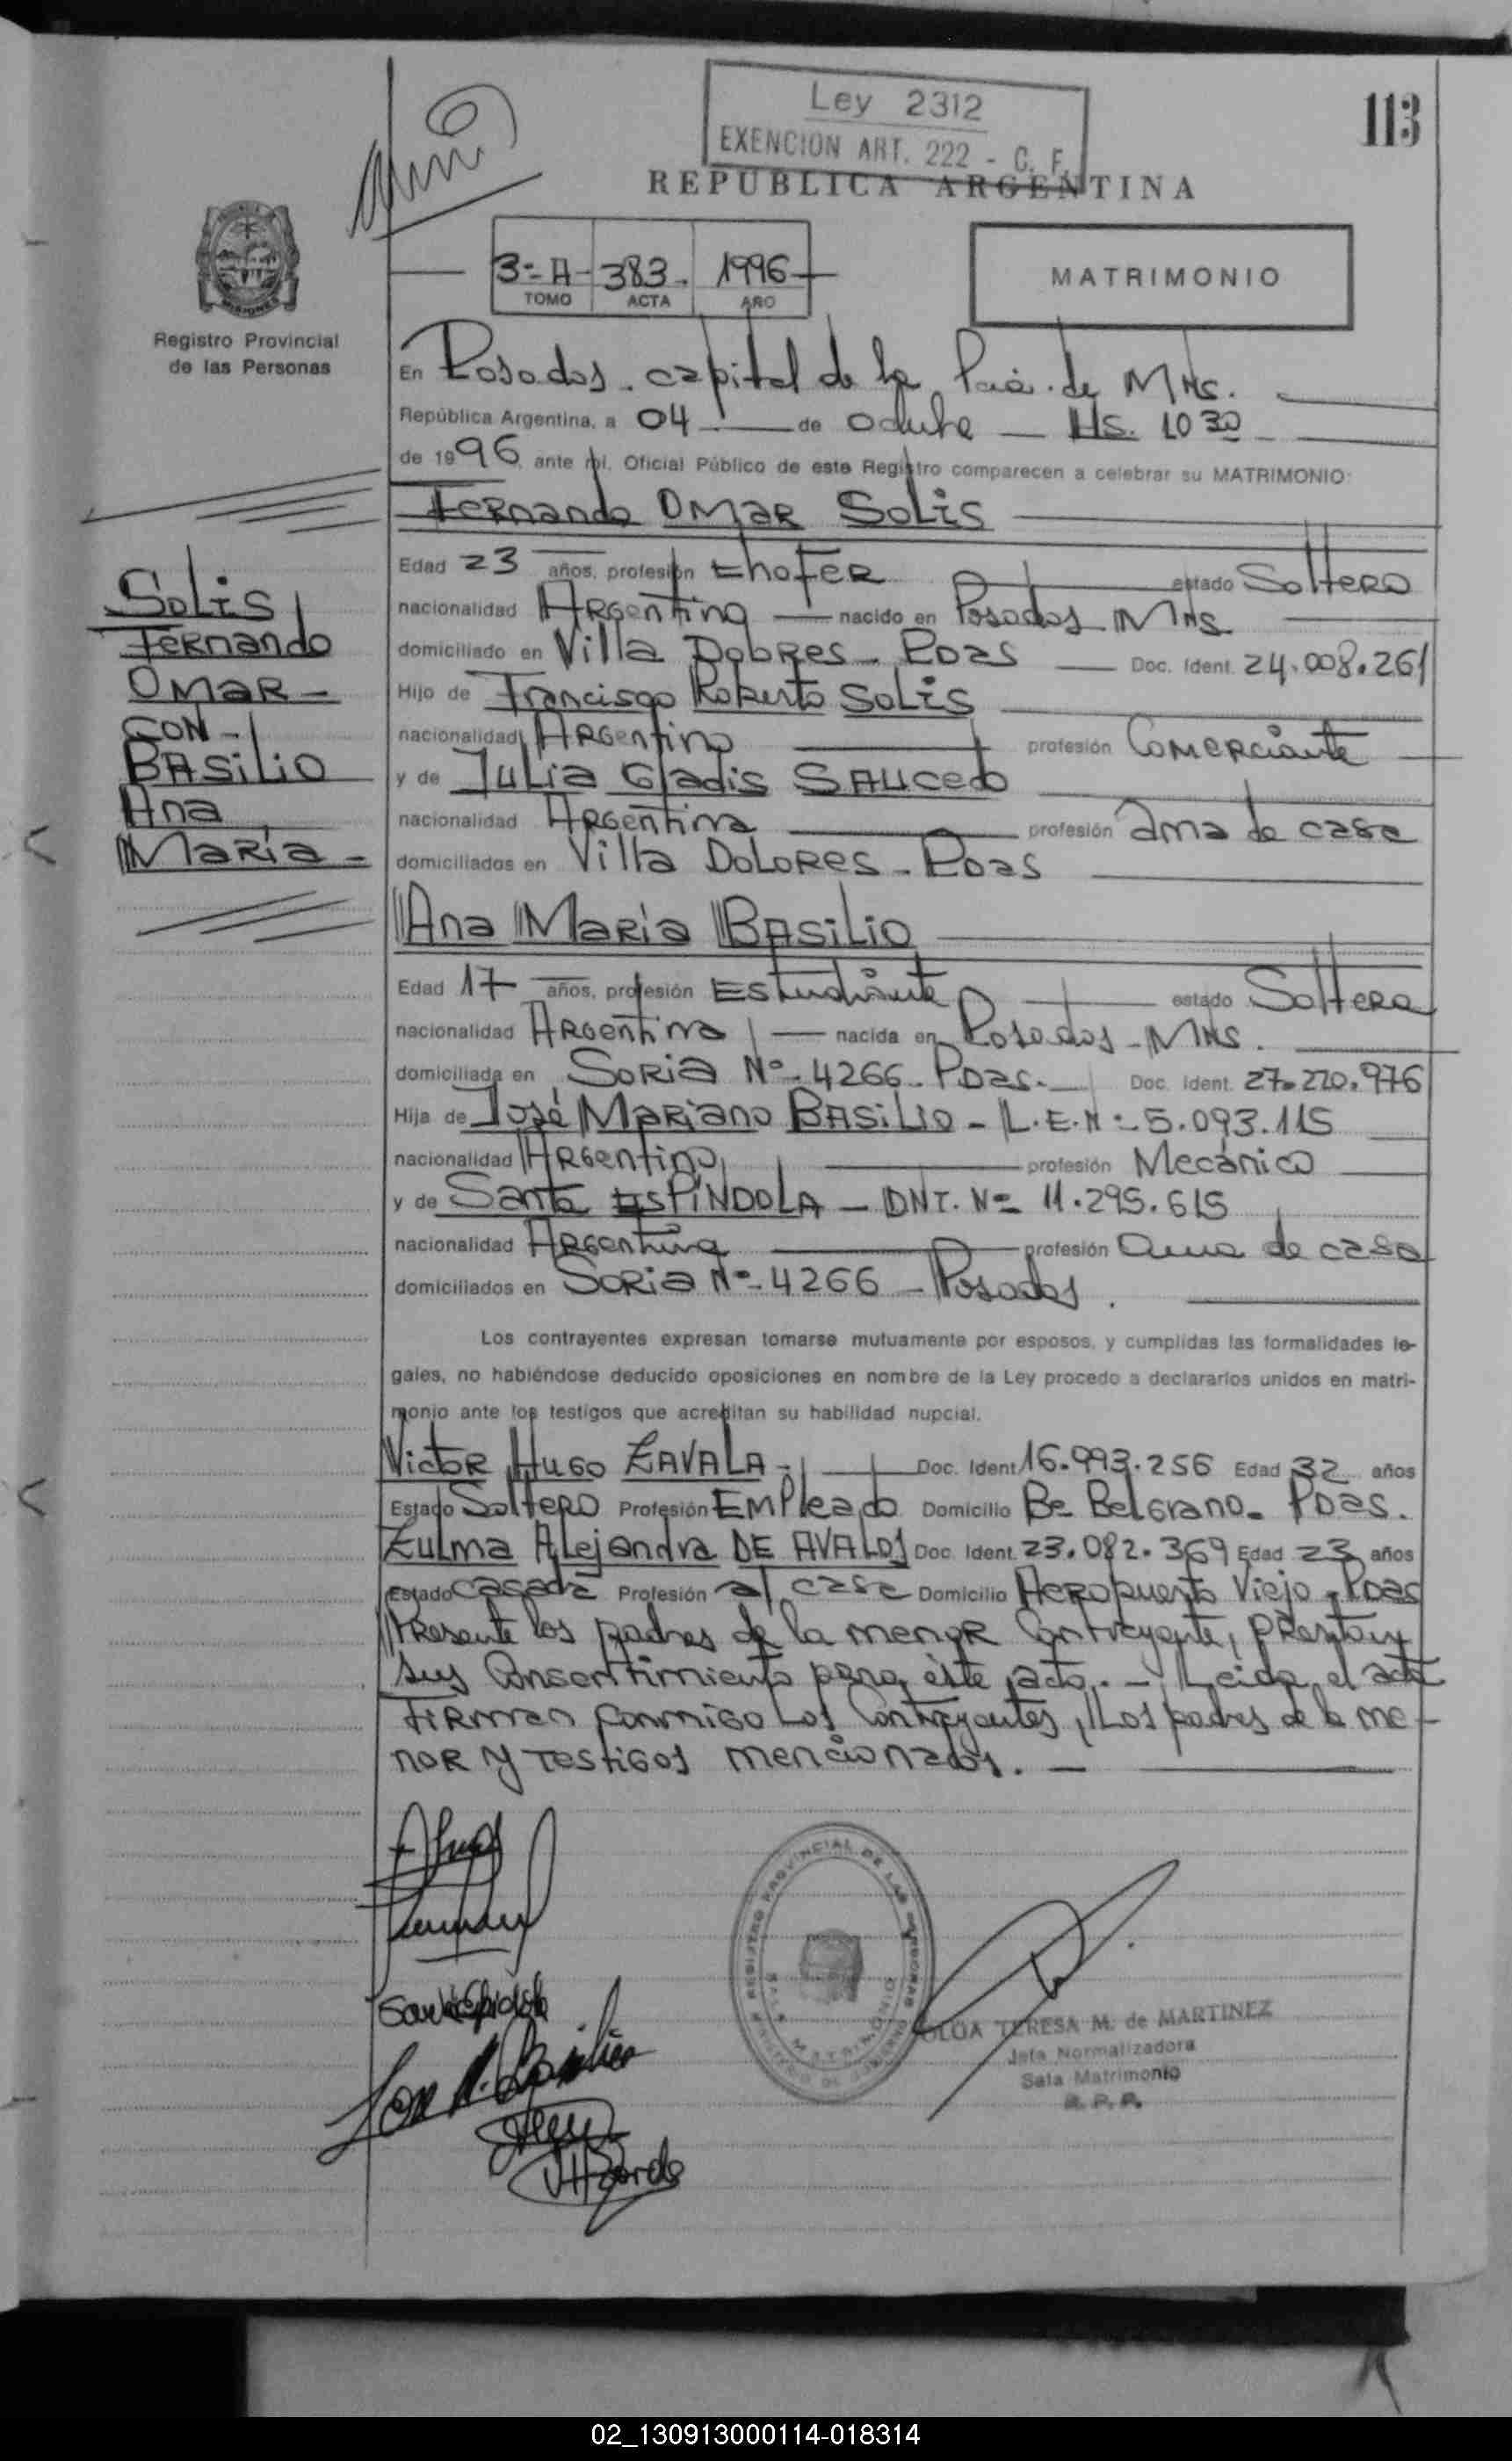 Ley 2312
EXENCION ART. 222 - C. F.
113
REPUBLICA ARGENTINA
3º-A- 383. 1996
TOMO ACTA AÑO
MATRIMONIO
Registro Provincial
de las Personas
En Posadas. capital de la Pcia. de MNS.
República Argentina, a 04 de octubre Hs. 10 30
de 1996, ante mí, Oficial Público de este Registro comparecen a celebrar su MATRIMONIO:
Fernando OMAR SOLIS
Edad 23 años, profesión chofer estado Soltero
nacionalidad Argentino nacido en Posadas MNS
domiciliado en Villa Dolores - Pdas Doc. Ident. 24.008.261
Hijo de Francisco Roberto SOLIS
nacionalidad Argentino profesión Comerciante
y de Julia Gladis SAUCEDO
nacionalidad Argentina profesión ama de casa
domiciliados en Villa DOLORES - Pdas
SOLIS
Fernando
OMAR -
CON -
BASILIO
Ana
María -
Ana María BASILIO
Edad 17 años, profesión Estudiante estado Soltera
nacionalidad Argentina nacida en Posadas - MNS.
domiciliada en SORIA Nº 4266 - Pdas. Doc. Ident. 27.220.976
Hija de José Mariano BASILIO - L.E.Nº 5.093.115
nacionalidad Argentino profesión Mecánico
y de Santa ESPÍNDOLA - DNI. Nº 11.295.615
nacionalidad Argentina profesión ama de casa
domiciliados en SORIA Nº 4266 - Posadas.
Los contrayentes expresan tomarse mutuamente por esposos, y cumplidas las formalidades le-
gales, no habiéndose deducido oposiciones en nombre de la Ley procedo a declararlos unidos en matri-
monio ante los testigos que acreditan su habilidad nupcial.
Victor Hugo ZAVALA - Doc. Ident. 16.993.256 Edad 32 años
Estado Soltero Profesión Empleado Domicilio Bº Belgrano - Pdas.
Zulma Alejandra DE AVALOS Doc. Ident. 23.082.369 Edad 23 años
Estado casada Profesión a/ casa Domicilio Aeropuerto Viejo - Pdas
Presente los padres de la menor contrayente, prestan
sus consentimiento para éste acto. - Leida el acta
firman conmigo Los Contrayentes, Los padres de la me-
nor y testigos mencionados. -
REGISTRO PROVINCIAL DE LAS PERSONAS
SALA MATRIMONIO
MINISTERIO DE GOBIERNO
OLGA TERESA M. de MARTINEZ
Jefa Normalizadora
Sala Matrimonio
R. P. P.
02_130913000114-018314